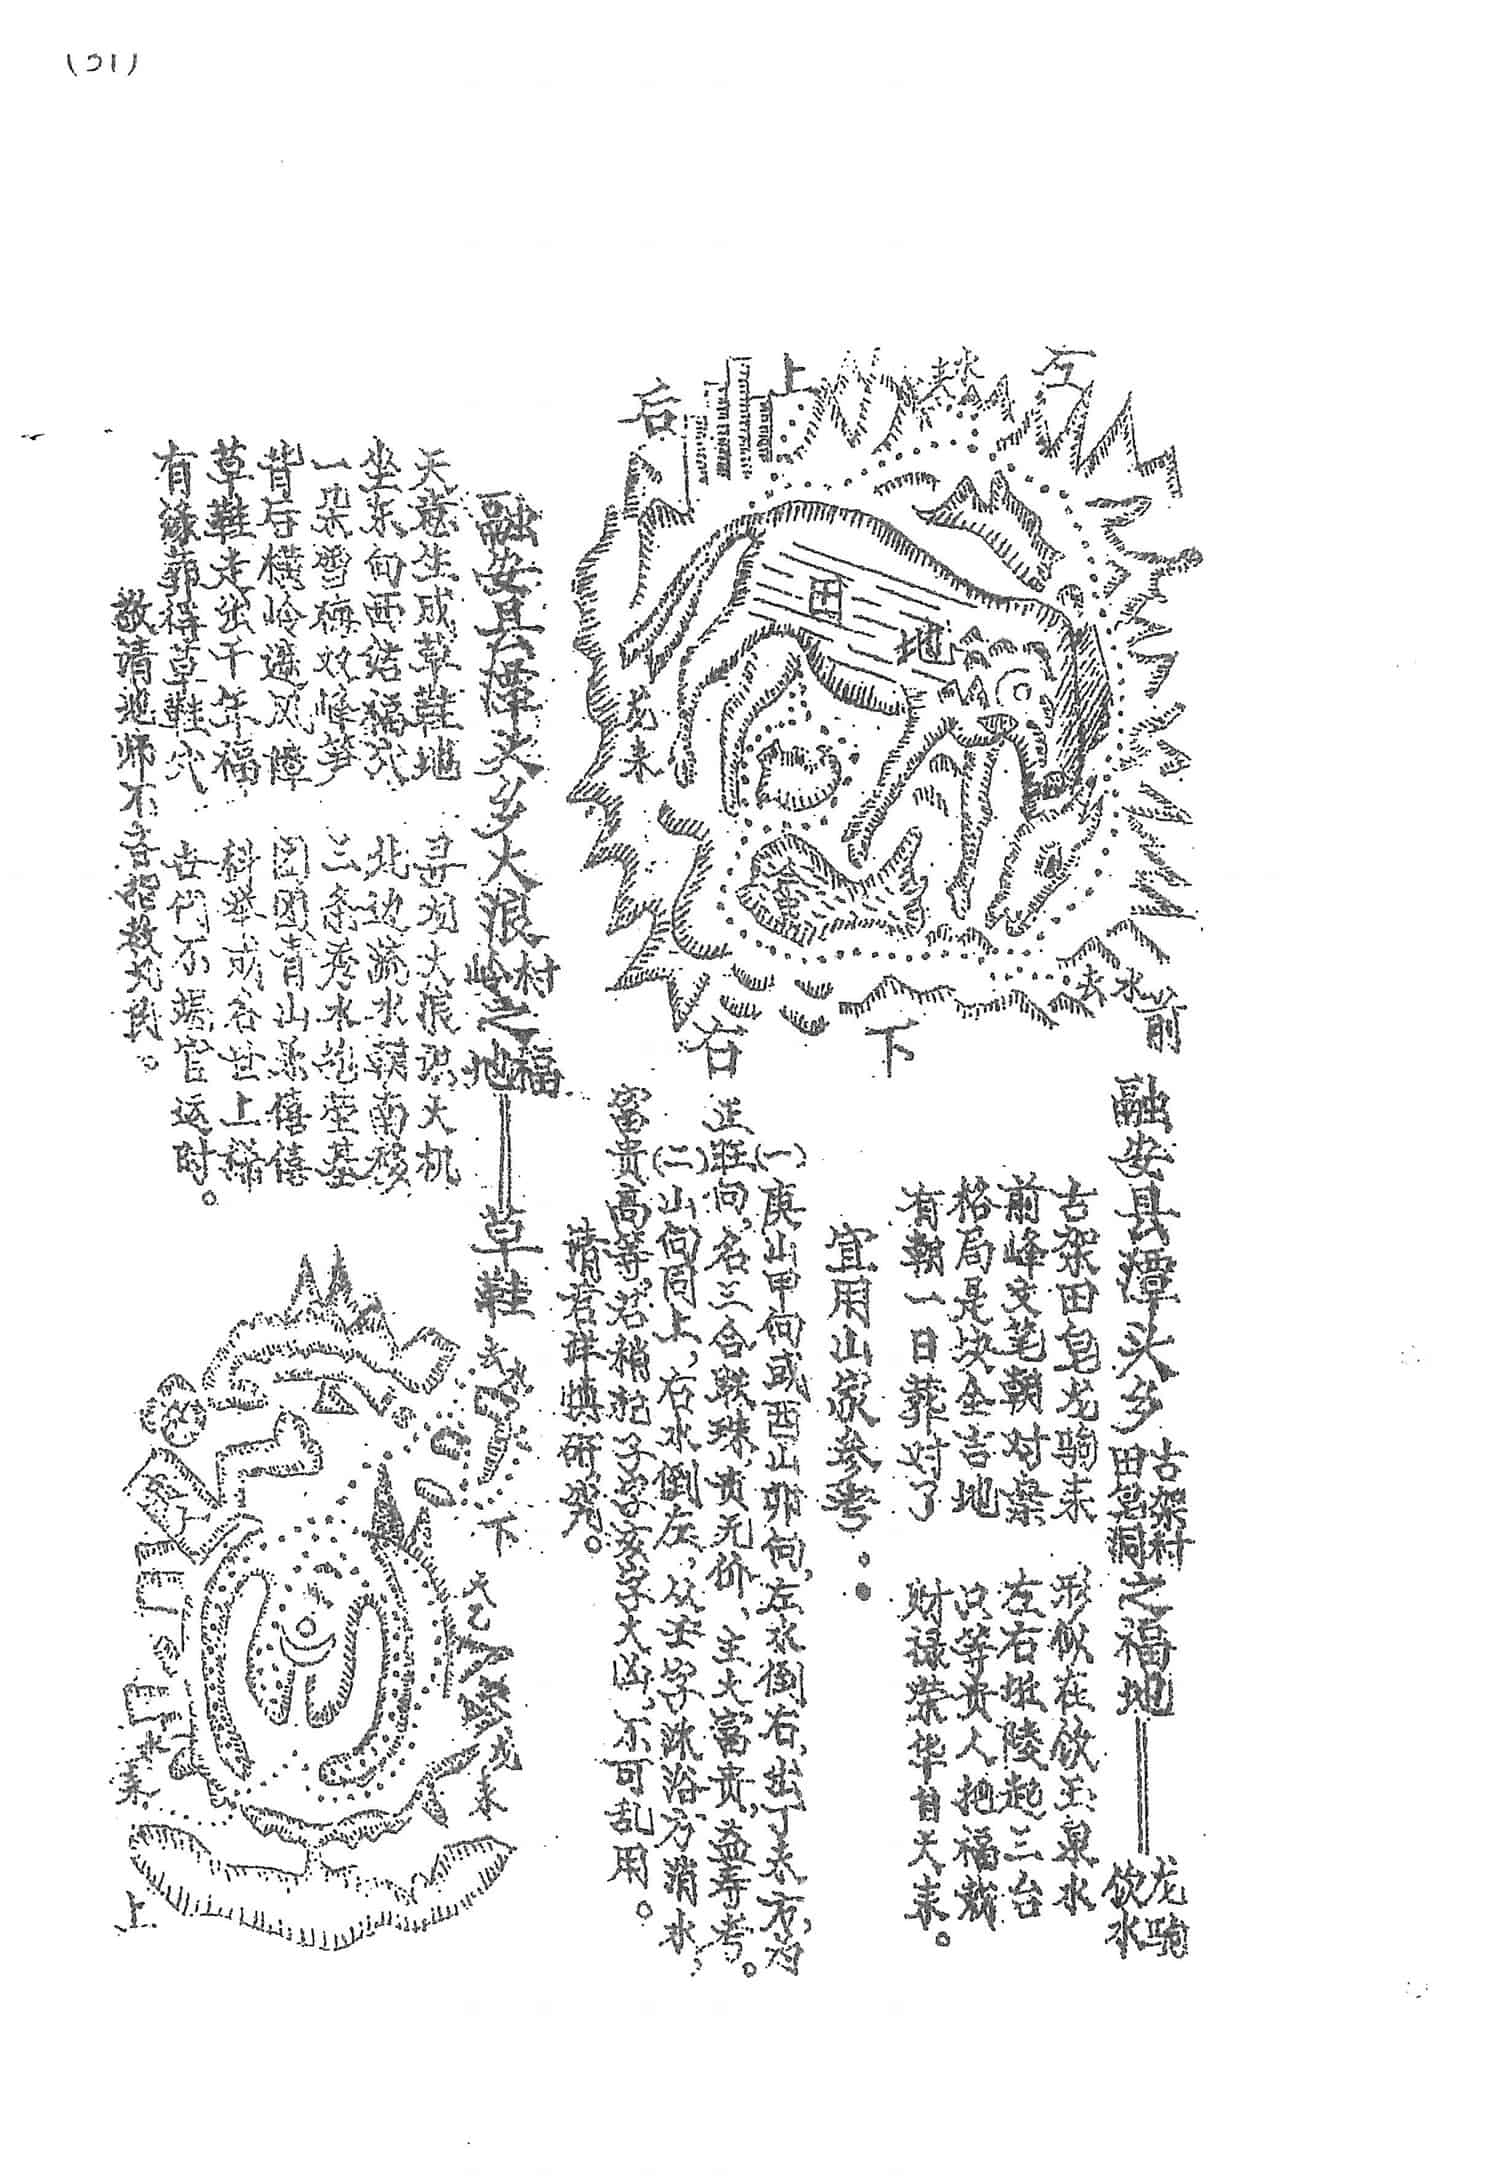 (31)
融安县潭头乡古架村田皂洞之福地——龙驹饮水
古架田皂龙驹来 形似在饮玉泉水
前峰文笔朝对案 左右墩陵起三台
格局是块全吉地 只等贵人把福栽
有朝一日葬对了 财禄荣华自天来。
宜用山家参考：
(一)庚山甲向或酉山卯向，左水倒右，出丁未方，为
正旺向，名三合联珠，贵无价、主大富贵，益寿考。
(二)山向同上，右水倒左，从壬字沐浴方消水，
富贵高等，若稍犯子字亥字大凶，不可乱用。
请君详慎研究。
左
水来
上
后
田
地
龙来
金
水去
前
下
右
融安县潭头乡大浪村岭之福地——草鞋
天意生成草鞋地 寻到大浪识天机
坐东向西结福穴 北边流水朝南移
一朵雪梅双峰笋 三条秀水绕堂基
背后横岭遮风障 团团青山乐僖僖
草鞋走出千年福 科举成名世上稀
有缘葬得草鞋穴 世代不端官运时。
敬请地师不吝指教为民。
水去
下
天乙
龙来
水来
上